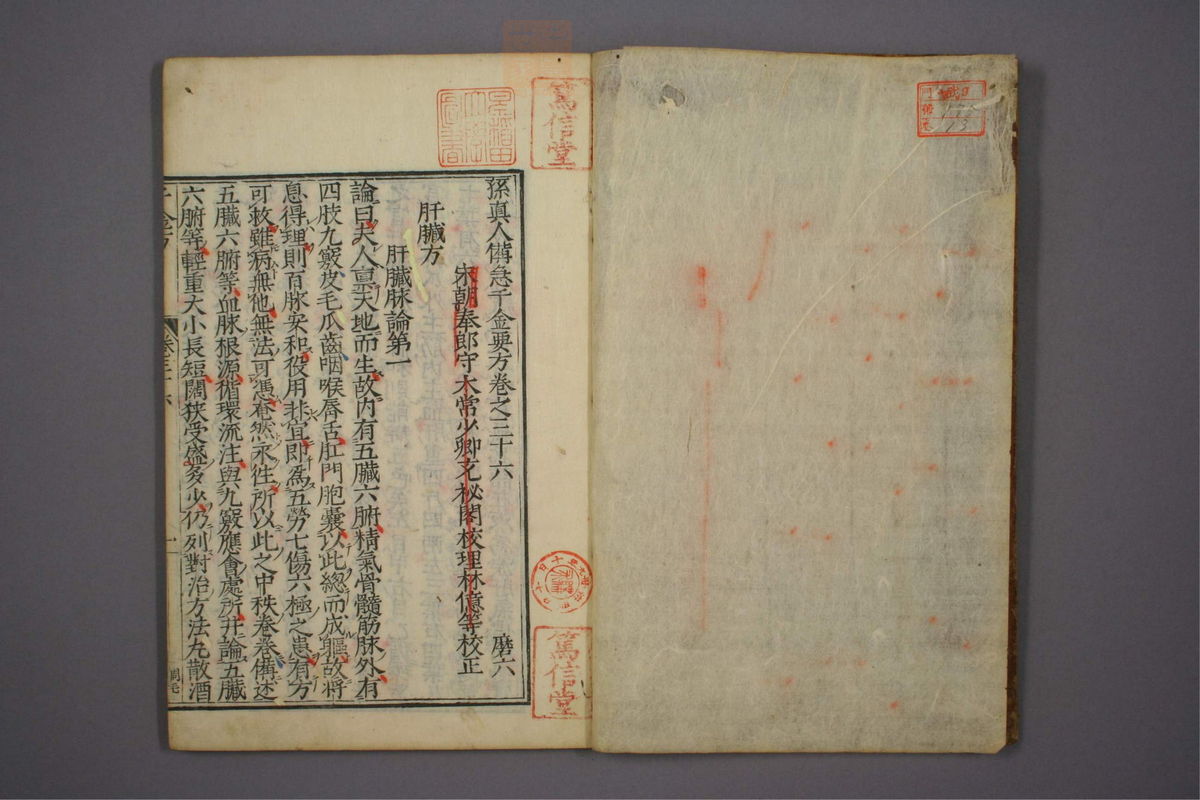 孫真人備急千金要方卷之三十六 磨六
宋朝奉郎守太常少卿充秘閣校理林億等校正
肝臟方
肝臟脉論第一
論曰夫人稟天地而生故内有五臟六腑精氣骨髓筋脉外有
四肢九竅皮毛爪齒咽喉脣舌肛門胞囊以此總而成軀故將
息得理則百脉安和役用非宜即爲五勞七傷六極之患有方
可救雖病無他無法可憑奄然永往所以此之中秩卷卷備述
五臟六腑等血脉根源循環流注與九竅應會處所并論五臟
六腑等輕重大小長短闊狹受盛多少仍列對治方法丸散酒
篤信堂
篤信堂